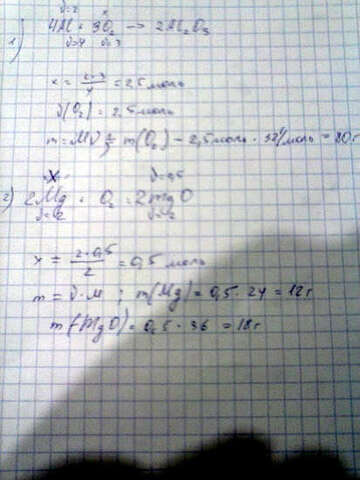 ν=2 x
1) 4Al + 3O₂ → 2Al₂O₃
ν=4 ν=3
x = 2·3/4 = 2,5 моль
ν(O₂) = 2,5 моль
m = Mν m(O₂) - 2,5 моль · 32г/моль = 80 г
x ν=0,5
2) 2Mg + O₂ = 2MgO
ν=2 ν=2
x = 2·0,5/2 = 0,5 моль
m = ν·M ; m(Mg) = 0,5 · 24 = 12 г
m(MgO) = 0,5 · 36 = 18 г